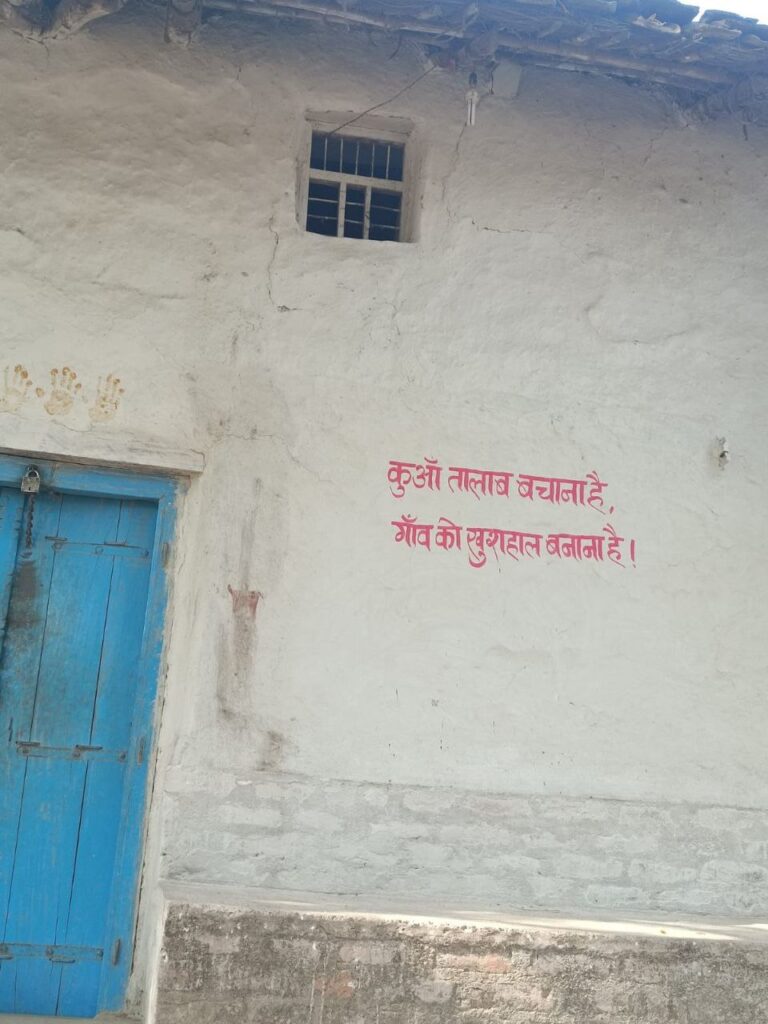 कुआँ तालाब बचाना है,
गाँव को खुशहाल बनाना है!